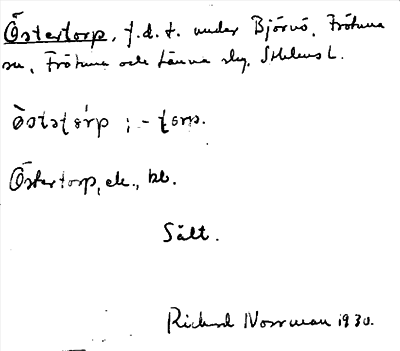 Östertorp, f.d. t. under Björnö, Frötuna
sn, Frötuna och Länna slg, Sthlms l.
Östertorp, ek., kb.
Sält.
Richard Norrman 1930.